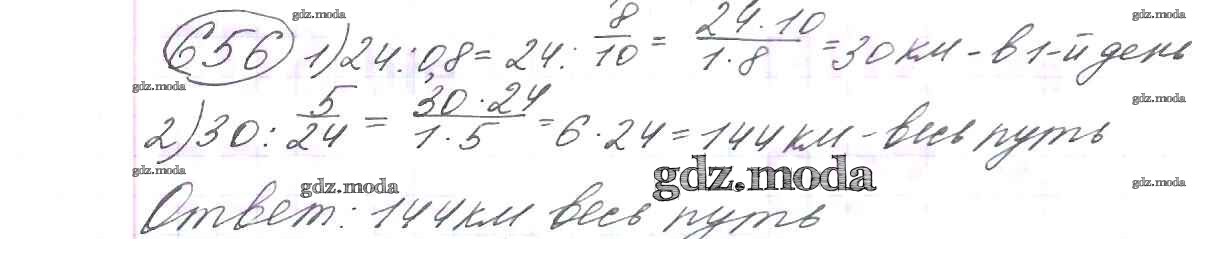 gdz.moda
656 1) 24 : 0,8 = 24 : 8/10 = 24 · 10 / 1 · 8 = 30 км - в 1-й день
gdz.moda gdz.moda
gdz.moda gdz.moda
2) 30 : 5/24 = 30 · 24 / 1 · 5 = 6 · 24 = 144 км - весь путь
gdz.moda gdz.moda gdz.moda gdz.moda
Ответ: 144 км весь путь